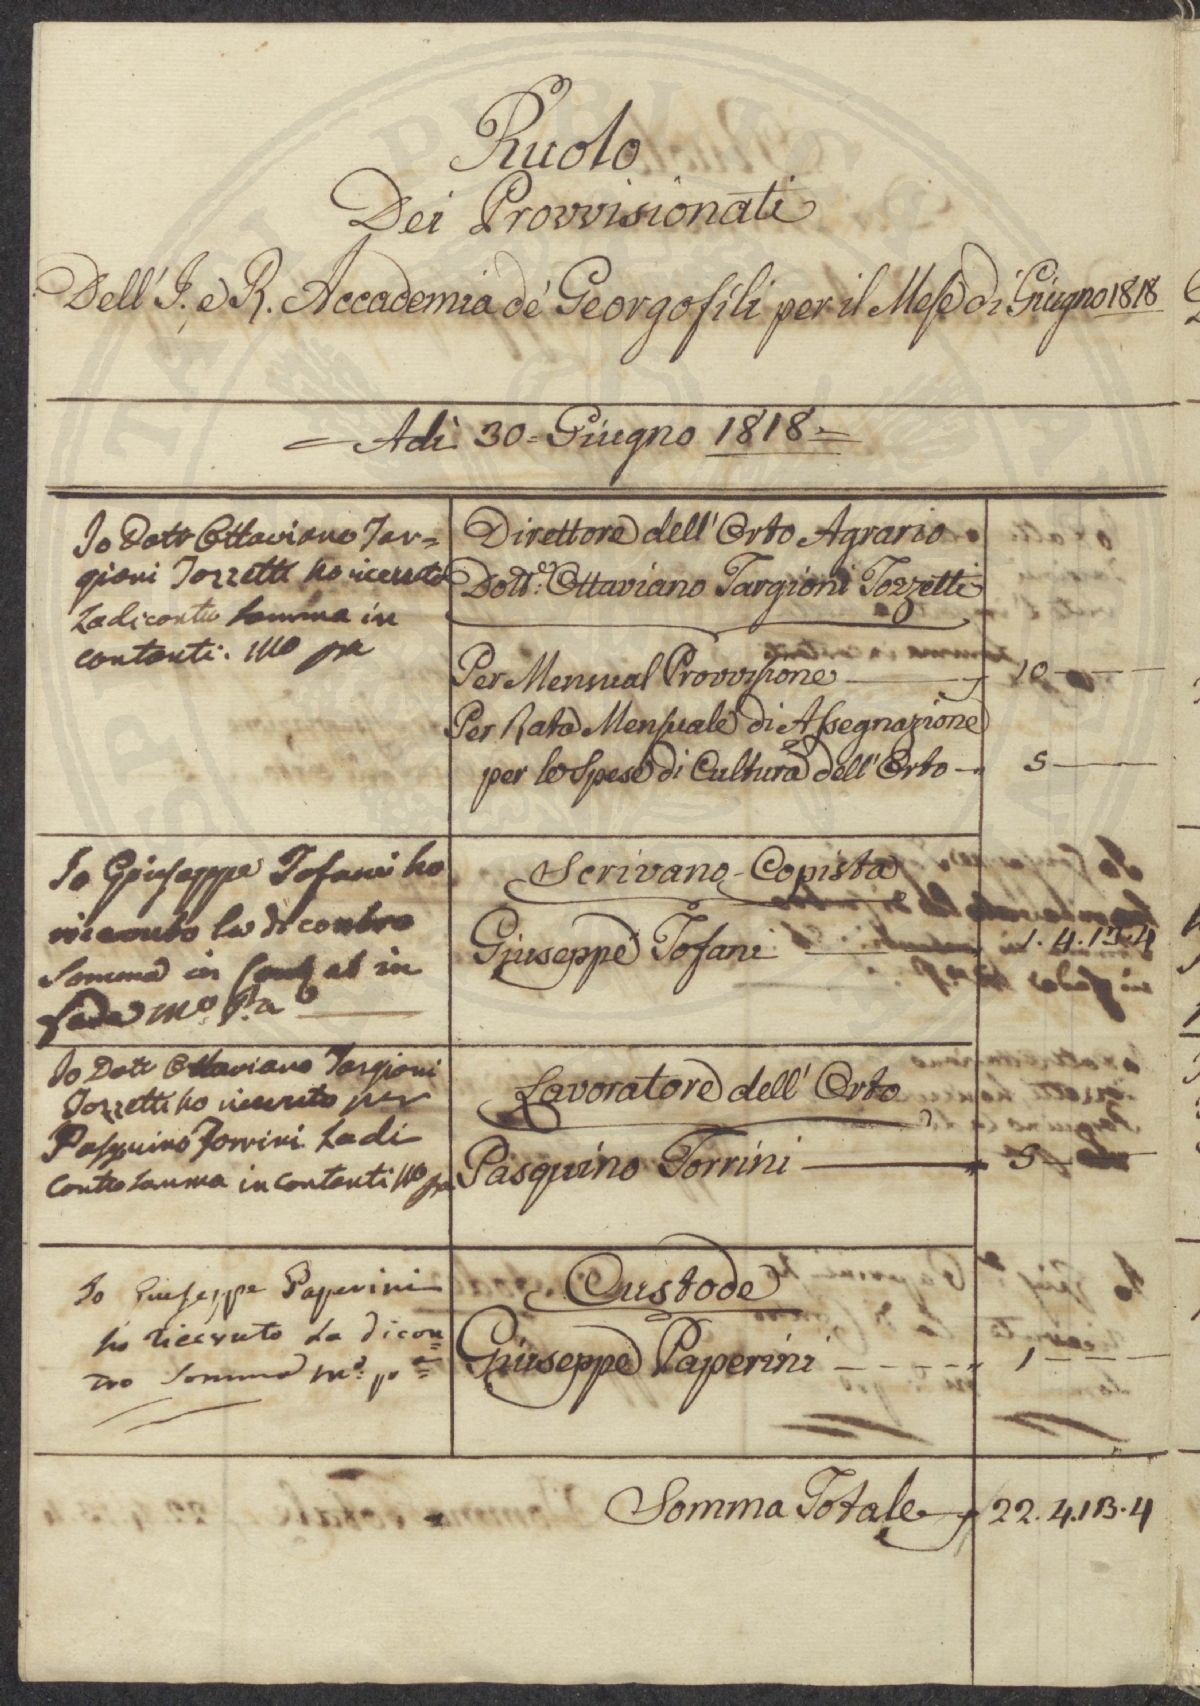 Ruolo
Dei Provvisionati
Dell' I. e R. Accademia de' Georgofili per il Mese di Giugno 1818
Adì 30 = Giugno 1818 =
Io Dott Ottaviano Tar=
gioni Tozzetti ho ricevuto
La di contro Somma in
contanti. mo pa
Direttore dell' Orto Agrario
Dott.e Ottaviano Targioni Tozzetti
Per Mensual Provvisione 10
Per Rata Mensuale di Assegnazione
per le Spese di Cultura dell' Orto 5
Io Giuseppe Tofani ho
ricevuto la di contro
Somma in et in
fede mo. p.a
Scrivano-Copista
Giuseppe Tofani 1. 4. 13. 4
Io Dott Ottaviano Targioni
Tozzetti ho ricevuto per
Pasquino Torrini La di
Contro Somma in Contanti mo pa
Lavoratore dell' Orto
Pasquino Torrini 5
Io Giuseppe Paperini
ho ricevuto La dicon=
tro Somma mo: pa=
Custode
Giuseppe Paperini 1
Somma Totale 22. 4. 13. 4